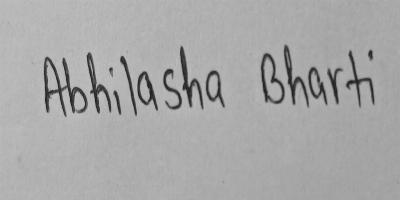 Abhilasha Bharti